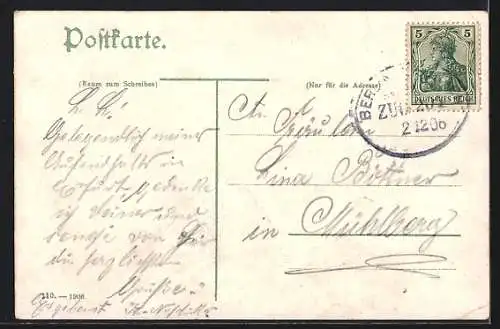 Postkarte.
(Raum zum Schreiben)
(Nur für die Adresse)
5 5
DEUTSCHES REICH
BER
ZUG
2 12 06
L. L!
Gelegentlich meines
Aufenthalts in
Erfurt gedenke
ich Deiner und
sende von hier
die herzlichsten
Grüße
Ergebenst
An
Fräulein
Lina Büttner
in
Mühlberg
110. — 1906.